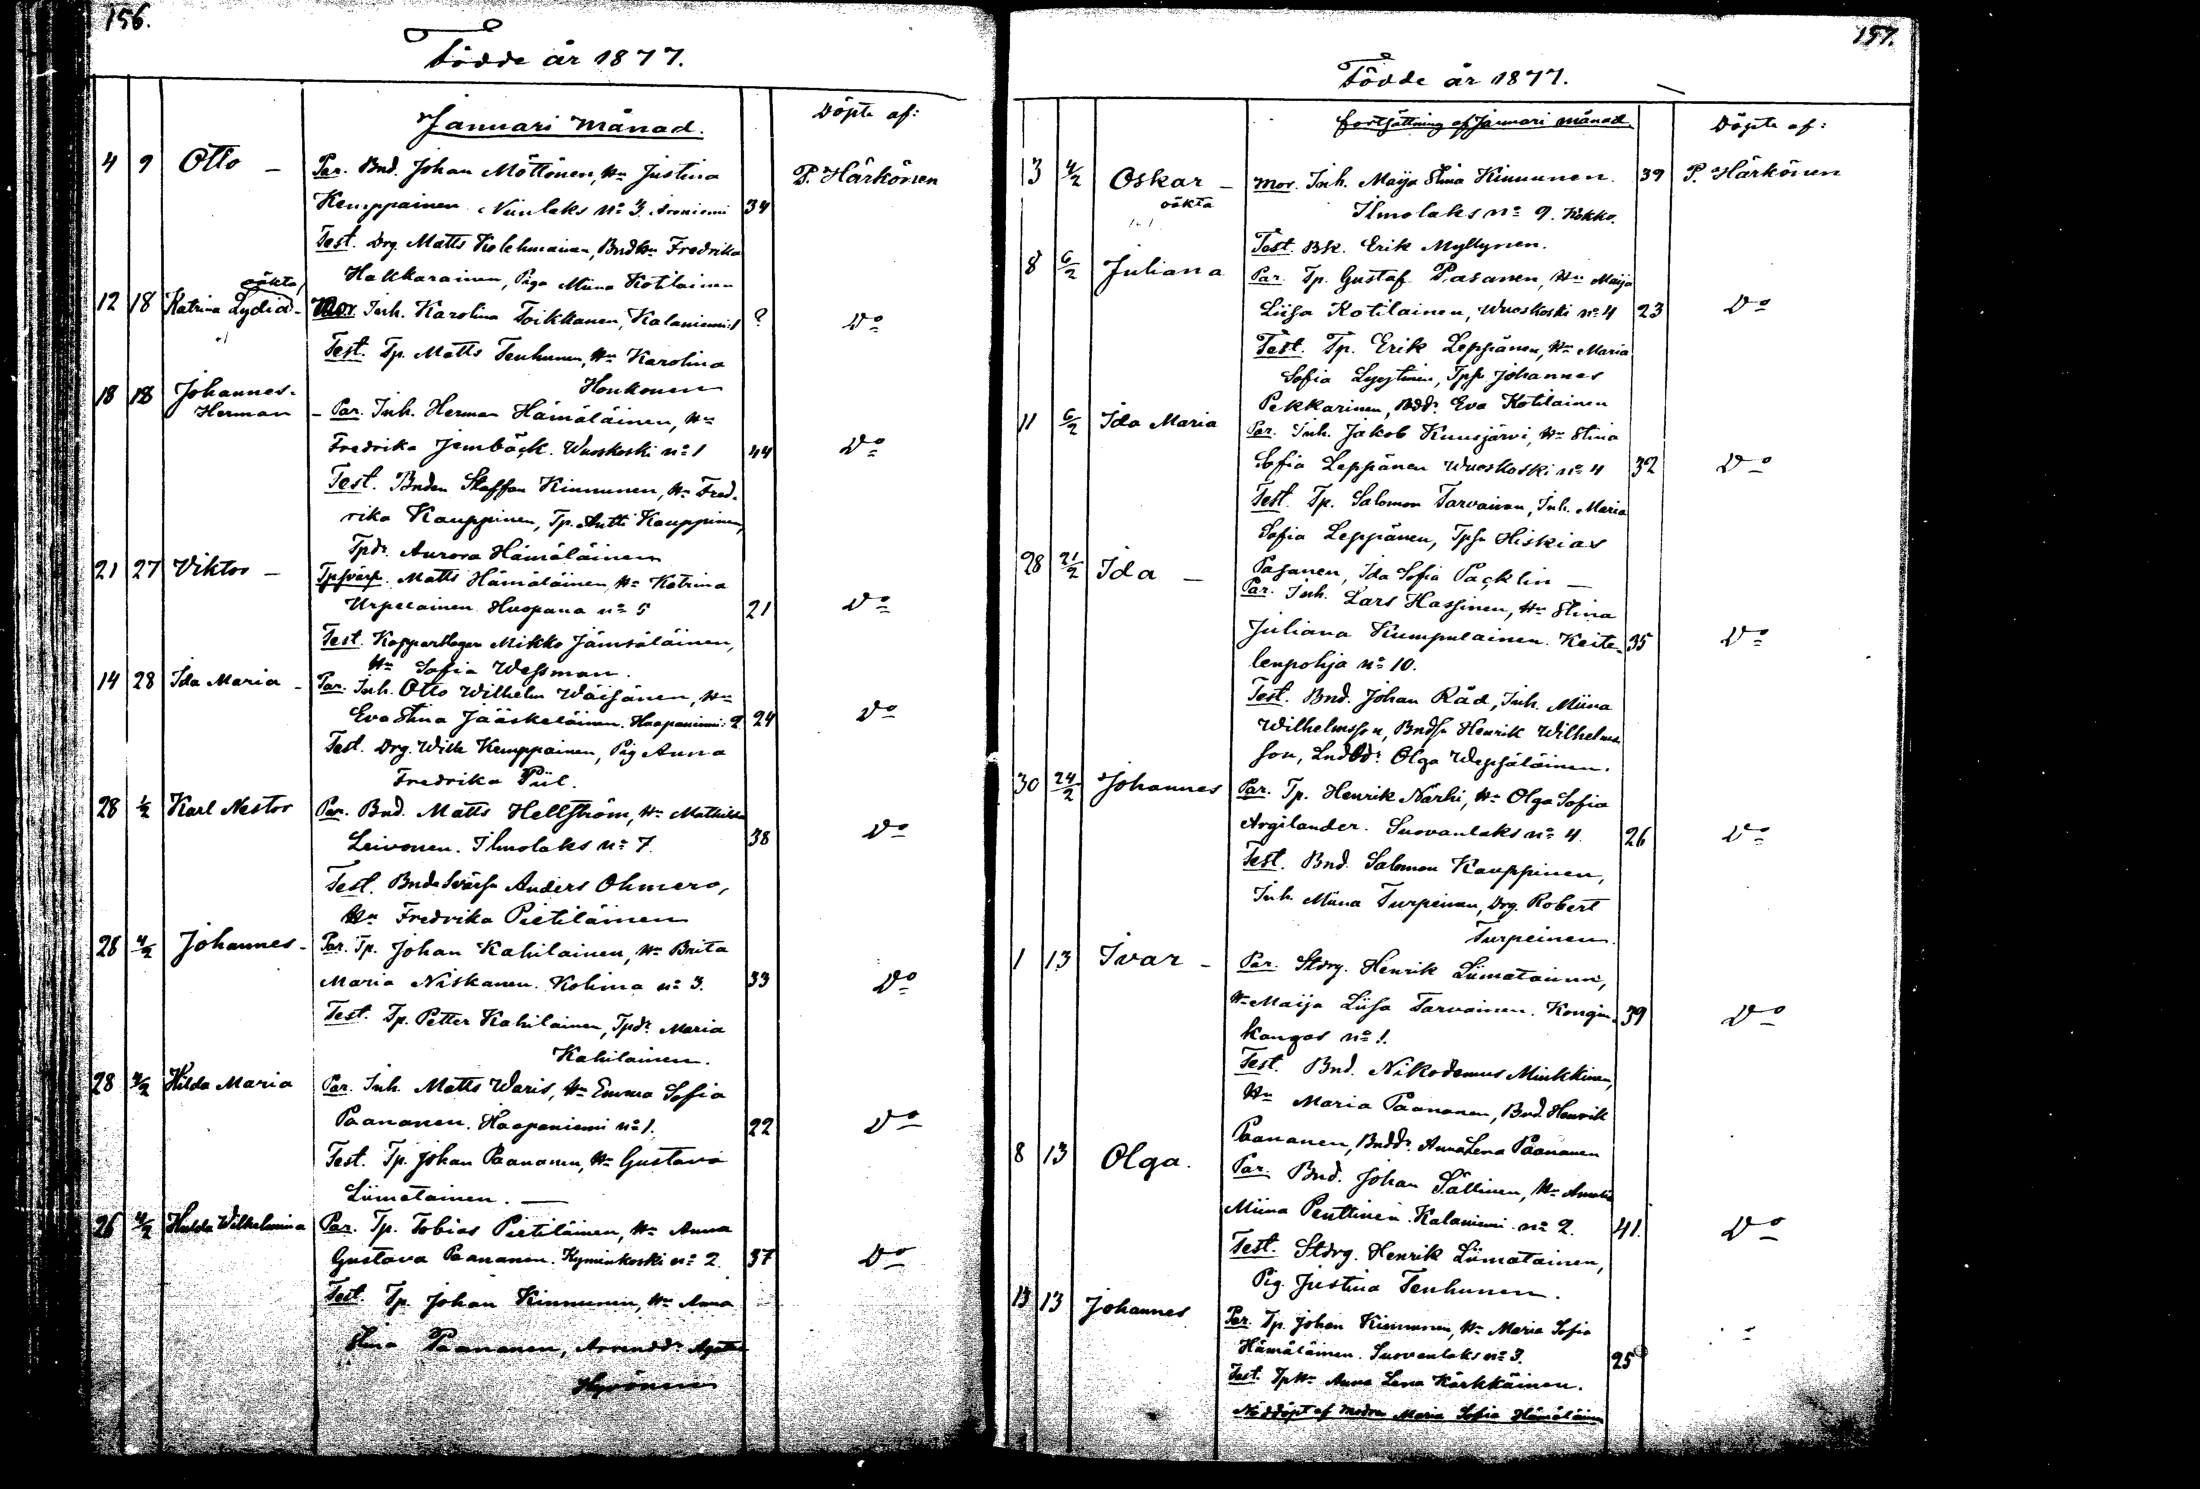 156.
Födde år 1877.
Januari månad.
Döpte af:
4 9 Otto – Par. Bnd. Johan Möttönen, Hn Justina P. Härkönen
Kemppainen Niinilaks No 3. Aroniemi 34
Test. Drg. Matts Kolehmainen, Bndhn Fredrika
Hakkarainen, Piga Miina Kotilainen
oäkta,
12 18 Katrina Lydia – Mor. Inh. Karolina Toikkanen, Kalaniemi: 1 ? Do
Test. Tp. Matts Tenhunen, Hn Karolina
Honkonen
18 18 Johannes-
Herman – Par. Inh. Herman Hämäläinen, Hn
Fredrika Jernbäck. Wuoskoski no 1 44 Do
Test. Bnden Staffan Kinnunen, Hn Fred-
rika Kauppinen, Tp. Antti Kauppinen,
Tpdr. Aurora Hämäläinen
21 27 Viktor – Tpsvärs. Matts Hämäläinen, Hn Katrina
Urpelainen Huopana no 5 21 Do
Test. Kopparslagar Mikko Jämsäläinen,
Hn Sofia Wessman.
14 28 Ida Maria – Par. Inh. Otto Wilhelm Wäisänen, Hn
Eva Stina Jääskeläinen. Haapaniemi: 2 24 Do
Test. Drg. Wilh Kemppainen, Pig Anna
Fredrika Piil.
28 1/2 Karl Nestor Par. Bnd. Matts Hellström, Hn Mathilda
Leivonen. Ilmolaks no 7. 38 Do
Test. Bnde Svärsn Anders Ohmero,
Hn Fredrika Pietiläinen
28 4/2 Johannes – Par. Tp. Johan Kahilainen, Hn Brita
Maria Niskanen. Kolima no 3. 33 Do
Test. Tp. Petter Kahilainen, Tpdr Maria
Kahilainen.
28 4/2 Hilda Maria Par. Inh. Matts Waris, Hn Emma Sofia
Paananen. Haapaniemi no 1. 22 Do
Test. Tp. Johan Paananen, Hn Gustava
Liimatainen. –
26 4/2 Hulda Wilhelmina Par. Tp. Tobias Pietiläinen, Hn Anna
Gustava Paananen. Kyminkoski no 2. 37 Do
Test. Tp. Johan Kinnunen, Hn Anna
Stina Paananen, Arrenddr Agata
Hyvönen
157.
Födde år 1877.
fortsättning af Januari månad.
Döpte af:
13 4/2 Oskar – Mor. Inh. Maija Stina Kinnunen. 39 P. Härkönen
oäkta Ilmolaks no 9. Kokko.
Test. Bk. Erik Myllynen.
8 6/2 Juliana Par. Tp. Gustaf Pasanen, Hn Maija
Liisa Kotilainen, Wuoskoski no 4 23 Do
Test. Tp. Erik Leppänen, Hn Maria
Sofia Lyytinen, Tpsn Johannes
Pekkarinen, Bddr Eva Kotilainen
11 6/2 Ida Maria Par. Inh. Jakob Kuusjärvi, Hn Stina
Sofia Leppänen Wuoskoski no 4 32 Do
Test. Tp. Salomon Tarvainen, Inh. Maria
Sofia Leppänen, Tpsn Hiskias
Pasanen, Ida Sofia Packlin –
28 21/2 Ida – Par. Inh. Lars Hassinen, Hn Stina
Juliana Kumpulainen. Keite- 35 Do
lenpohja no 10.
Test. Bnd. Johan Råd, Inh. Miina
Wilhelmsson, Bndsn Henrik Wilhelms-
son, Lndbdr Olga Wepsäläinen.
30 24/2 Johannes Par. Tp. Henrik Närhi, Hn Olga Sofia
Argilander. Suovanlaks no 4. 26 Do
Test. Bnd. Salomon Kauppinen,
Inh. Miina Turpeinen, Drg. Robert
Turpeinen.
1 13 Ivar – Par. Stdrg. Henrik Liimatainen,
Hn Maija Liisa Tarvainen. Kongin- 39 Do
kangas no 1.
Test. Bnd. Nikodemus Minkkinen,
Hn Maria Paananen, Bnd. Henrik
Paananen, Bnddr Anna Lena Paananen
8 13 Olga. Par. Bnd. Johan Sällinen, Hn Amalia
Miina Penttinen. Kalaniemi no 2. 41. Do
Test. Stdrg. Henrik Liimatainen,
Pig. Justina Tenhunen.
13 13 Johannes Par. Tp. Johan Kinnunen, Hn Maria Sofia
Hämäläinen. Suovanlaks no 3. 25
Test. TpHn Anna Lena Kärkkäinen.
Nöddöpt af modren Maria Sofia Hämäläinen